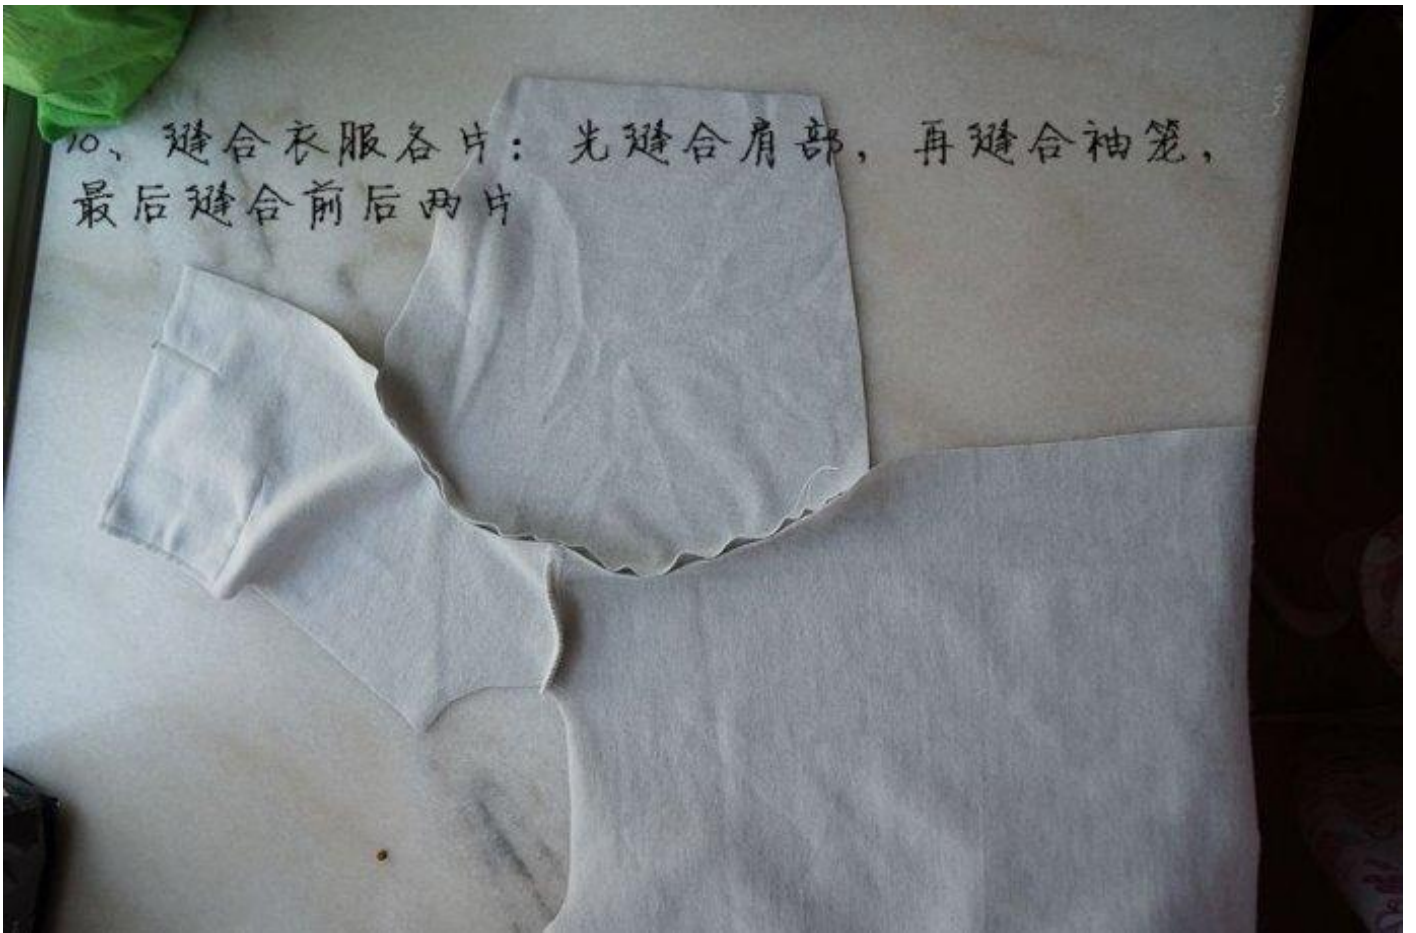 10、缝合衣服各片：光缝合肩部，再缝合袖笼，
最后缝合前后两片